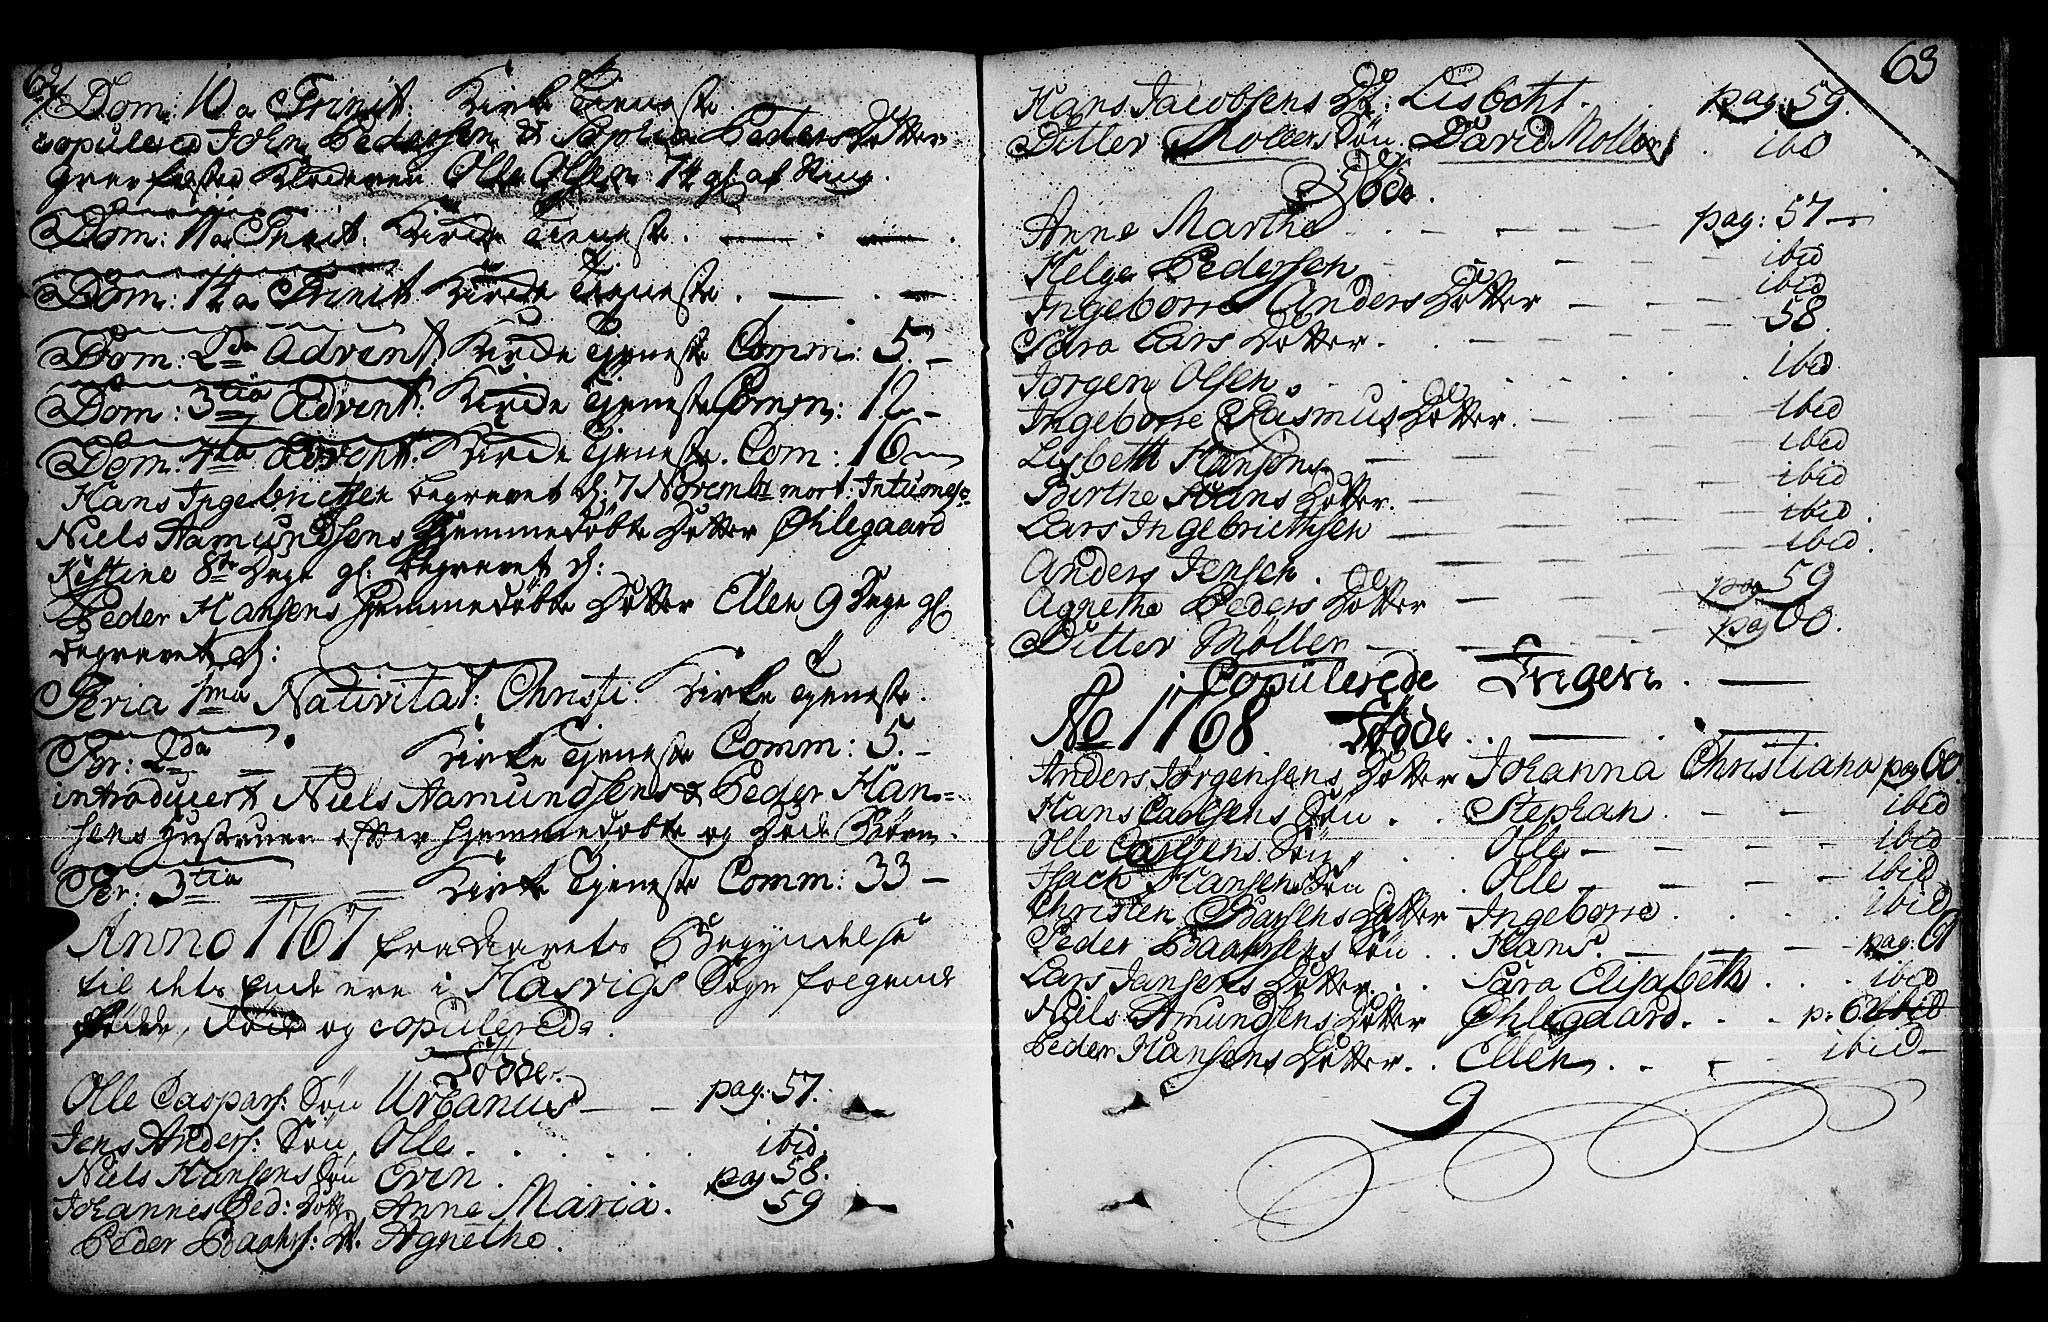 62
Dom: 10 a Trinit: Kirke Tieneste
copulered John Pedersen & Sophia Peders Dotter
Olle Olsen 74
Dom: 11 a Trinit: Kirke Tieneste.
Dom: 14 a Trinit Kirke Tieneste.
Dom: 2da Advent Kirke Tieneste Comm: 5.
Dom: 3tia Advent: Kirke Tieneste Comm: 12
Dom: 4ta Advent: Kirke Tieneste. Com: 16
Hans Ingebrictsen begravet d: 7 Novembr mort:
Niels Aamundsens hiemmedøbte Dotter Øhlegaard
Kistine 8te Dage gl. begravet d:
Peder Hansens hiemmedøbte Dotter Ellen 9 Dage gl
begravet d:
Feria 1ma Nativitat: Christi. Kirke Tieneste.
Fer: 2da Kirke Tieneste Comm: 5.
introducert Niels Aamundsens & Peder Han=
sens Hustruer efter hiemmedøbte og døde Børn.
Fer: 3tia Kirke Tieneste Comm: 33
Anno 1767 fra Aarets Begyndelse
til dets Ende ere i Hasvigs Sogn følgende
Fødde, døde og copulerede.
Fødde.
Olle Caspars: Søn Urbanus pag: 57.
Jens Anders: Søn Olle. ibid
Niels Hansens Søn Evin. pag 58.
Johannes Ped: Dott Anne Maria. 59
Peder Baahrs: Dt. Agnethe.
63
Hans Jacobsens Dt: Lisbeht. pag. 59.
Ditler Mollers Søn David Moller ibd
Døde.
Anne Marthe pag: 57
Helge Pedersen ibid
Ingeborre Anders Dotter ibid
Sara Lars Dotter. 58
Jørgen Olsen. ibid
Ingeborre Rasmus Dotter. ibid
Lisbeth Hansen ibid
Birthe Hans Dotter. ibid
Lars Ingebricthsen ibid.
Anders Jensen. ibid.
Agnethe Peders Dotter pag 59
Ditter Møller pag 60.
Copulerede Ingen.
Ao 1768 Fødde
Anders Jørgensens Dotter Johanna Christiana pag 60.
Hans Carlsens Søn Stephan ibid
Olle Carlsens Søn Olle ibid
Hach Hansens Søn Olle ibid
Christen Dotter Ingeborre. ibid
Peder Baahrsens Søn Hans. pag: 61
Lars Jansens Dotter Sara Elisabeth ibid
Niels Amundsens Dotter Øhlegaard. p: 62
Peder Hansens Dotter Ellen ibid
9